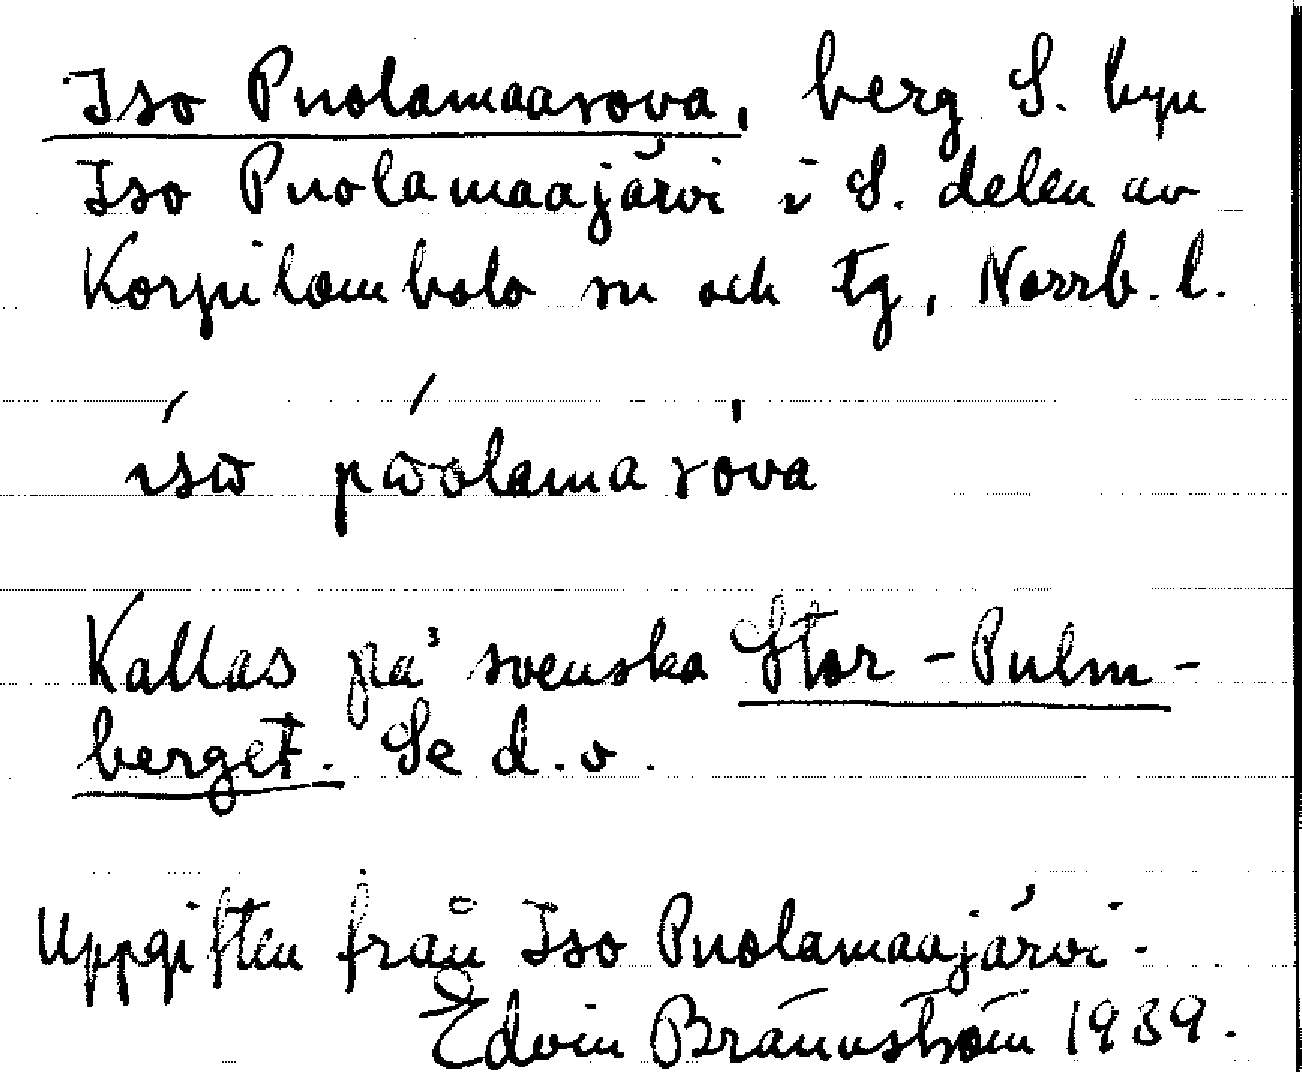 Iso Puolamaarova, berg S. byn
Iso Puolamaajärvi i S. delen av
Korpilombolo sn och tg, Norrb. l.
ísω pώolamarova
Kallas på svenska Stor-Pulm-
berget. Se d.o.
Uppgiften från Iso Puolamaajärvi.
Edvin Brännström 1939.